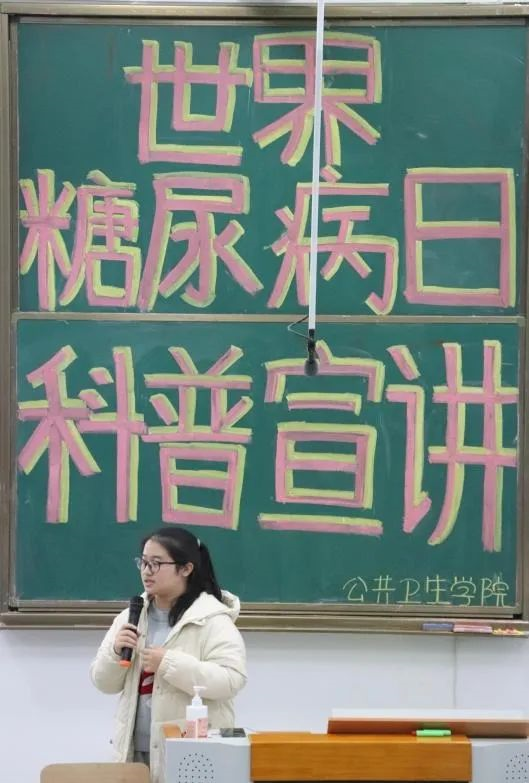 世界
糖尿病日
科普宣讲
公共卫生学院